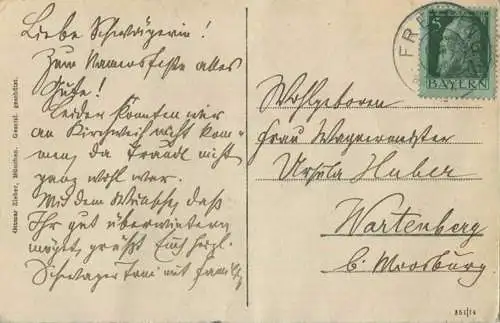 Liebe Schwägerin!
Zum Namensfeste alles
Gute!
Leider konnten wir
an Kirchweih nicht kom-
men, da Traudl nicht
ganz wohl war.
Mit dem Wunsche, daß
Ihr gut überwintern
möget, grüßt Euch herzl.
Schwager Toni mit Fam.
Ottmar Zieher, München. Gesetzl. geschützt.
FR
5
BAYERN
Wohlgeboren
Frau Wagnermeister
Ursula Huber
Wartenberg
b. Moosburg